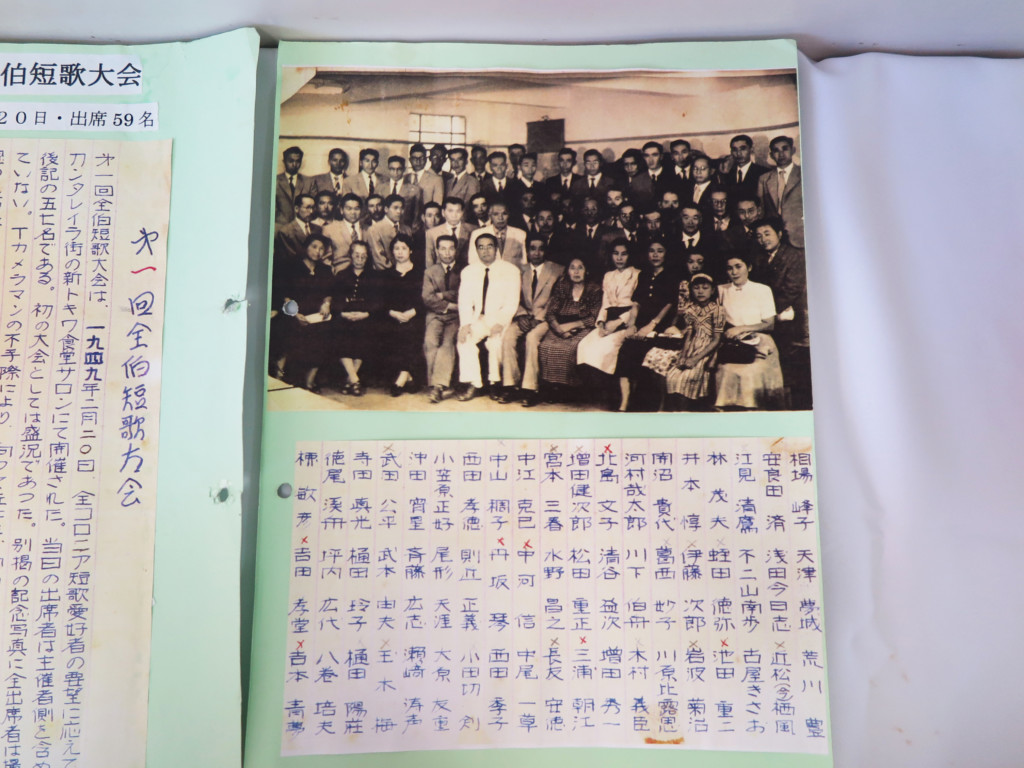 伯短歌大会
20日・出席59名
才一回全伯短歌大会
才一回全伯短歌大会は、一九四九年二月二〇日、全コロニア短歌愛好者の要望に応えて
カンタレイラ街の新トキワ食堂サロンにて開催された。当日の出席者は主催者側を含め
後記の五七名である。初の大会としては盛況であった。別掲の記念写真に全出席者は
ていない。Tカメラマンの不手際により、
相場 峰子 天津 夢城 荒川 豊
安良田 済 浅田今日志 近松(今)栖風
江見 清鷹 不二山南歩 古屋きさお
林 茂夫 蛭田 徳弥 池田 重二
井本 惇 伊藤 次郎 岩波 菊治
開沼 貴代 葛西 妙子 川原比露思
河村哉太郎 川下 伯舟 木村 義臣
北島 文子 清谷 益次 増田 秀一
増田健次郎 松田 重正 三浦 朝江
宮本 三春 水野 昌之 長友 安徳
中江 克巳 中河 信 中尾 一草
中山 稠子 丹坂 琴 西田 季子
西田 孝徳 則近 正義 小田切 剣
小笠原正好 尾形 天涯 大京 友重
沖田 宵星 斉藤 広志 瀬崎 涛声
武田 公平 武本 由夫 玉木 梅
寺田 真光 樋田 玲子 樋田 陽荘
徳尾 渓舟 坪内 広代 八巻 培夫
椋 敏彦 吉田 孝堂 吉本 青夢